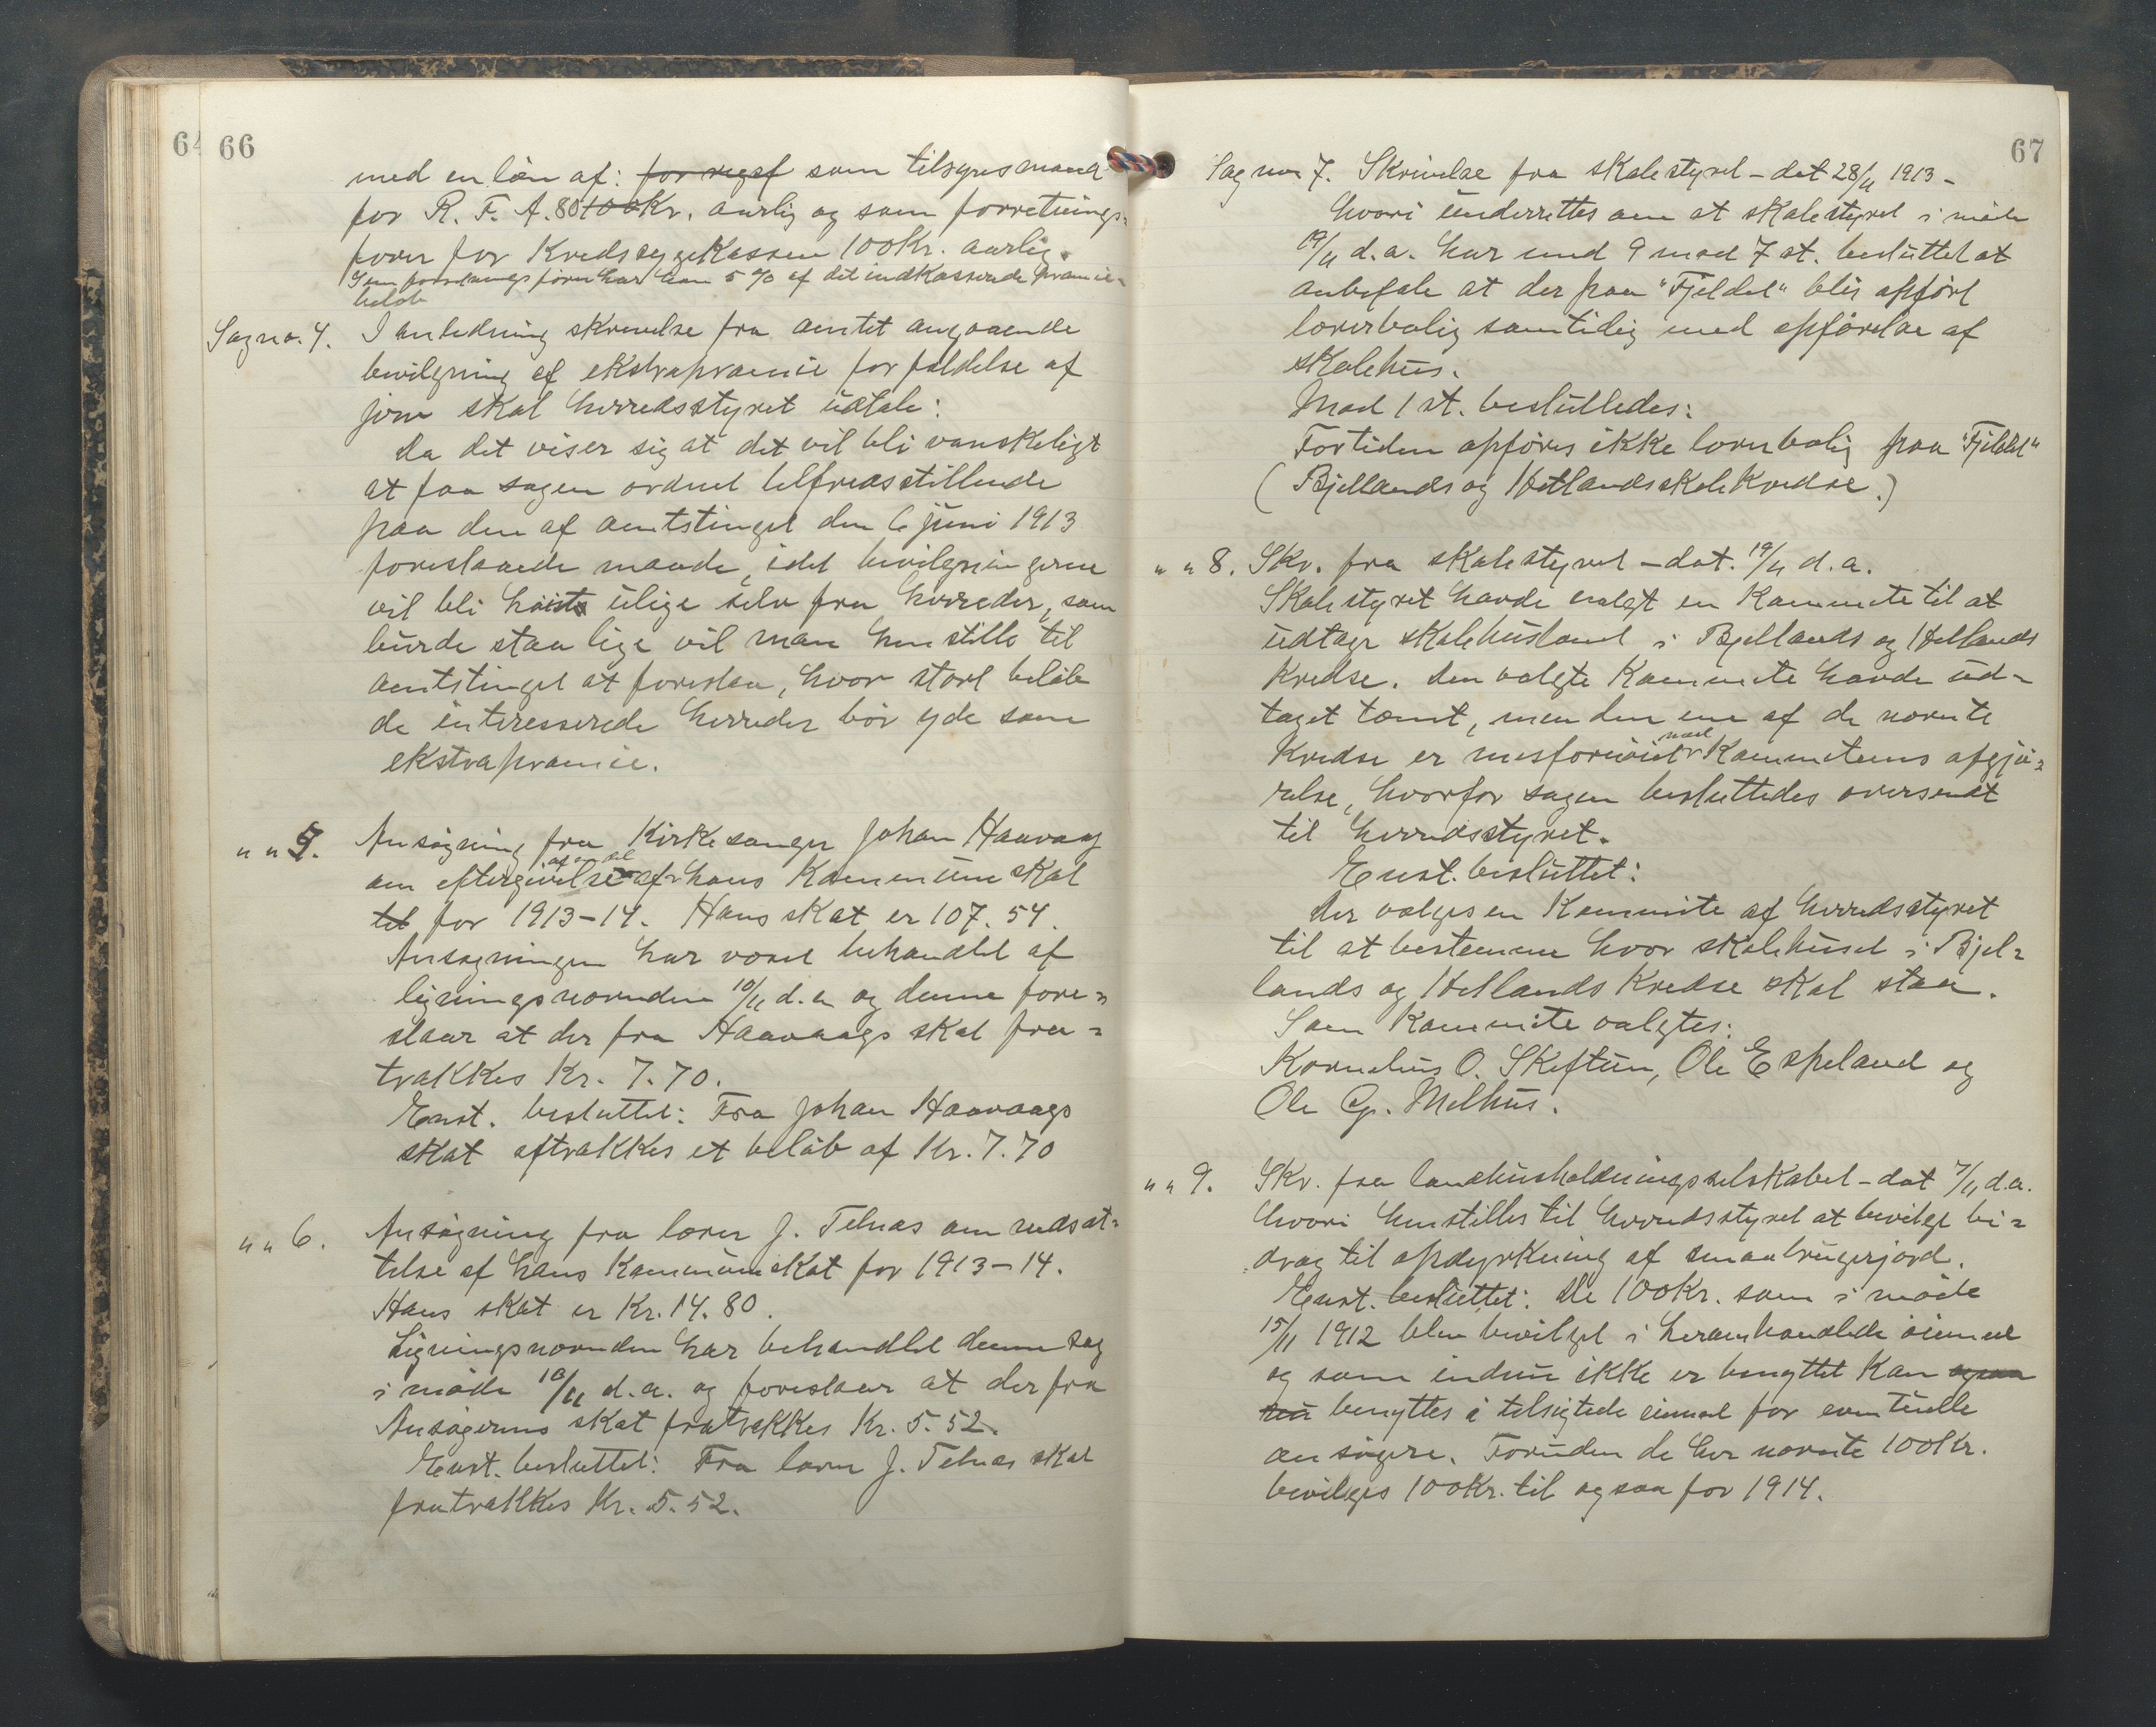 64 66
med en løn af: for reget som tilsynsmand
for R. F. A. 80 100 Kr. aarlig og som forretnings-
fører for Kredssygekassen 100 Kr. aarlig.
Som forretningsfører har han 5 % af det indkasserede præmie-
beløb
Sag no. 4. I anledning skrivelse fra amtet angaaende
bevilgning af ekstrapræmie for fældelse af
jørv skal herredsstyret udtale:
Da det viser sig at det vil bli vanskeligt
at faa sagen ordnet tilfredsstillende
paa den af amtstinget den 6 juni 1913
foreslaaede maade, idet bevilgningerne
vil bli høist ulige selv fra herreder, som
burde staa lige vil man henstille til
amtstinget at foreslaa, hvor stort beløb
de interesserede herreder bør yde som
ekstrapræmie.
" " 5. Ansøgning fra Kirkesanger Johan Haavaag
om eftergivelse af en del af hans Kommuneskat
til for 1913-14. Hans skat er 107.54.
Ansøgningen har været behandlet af
ligningsnævnden 10/11 d.a. og denne fore-
slaar at der fra Haavaags skat fra-
trækkes Kr. 7.70.
Enst. besluttet: Fra Johan Haavaags
skat aftrækkes et beløb af Kr. 7.70
" " 6. Ansøgning fra lærer J. Telnæs om nedsæt-
telse af hans Kommuneskat for 1913-14.
Hans skat er Kr. 14.80.
Ligningsnævnden har behandlet denne sag
i møde 10/11 d.a. og foreslaar at der fra
Ansøgerens skat fratrækkes Kr. 5.52.
Enst. besluttet: Fra lærer J. Telnæs skat
fratrækkes Kr. 5.52.
67
Sag no 7. Skrivelse fra skolestyret - dat 28/11 1913 -
hvori underrettes om at skolestyret i møde
19/11 d.a. har med 9 mod 7 st. besluttet at
anbefale at der paa "Fjeldet" blir opført
lærerbolig samtidig med opførelse af
skolehus.
Mod 1 st. besluttedes:
Fortiden opføres ikke lærerbolig paa "Fjeldet"
(Bjellands og Hetlands skolekredse.)
" " 8. Skr. fra skolestyret - dat. 19/11 d.a.
Skolestyret havde valgt en Kommite til at
udtage skolehustomt i Bjellands og Hetlands
Kredse. Den valgte Kommite havde ud-
taget tomt, men den ene af de nævnte
Kredse er misfornøiet med Kommiteens afgjø-
relse, hvorfor sagen besluttedes oversendt
til herredsstyret.
Enst. besluttet:
Der vælges en Kommite af herredsstyret
til at bestemme hvor skolehuset i Bjel-
lands og Hetlands Kredse skal staa.
Som Kommite valgtes:
Kornelius O. Skeftun, Ole Espeland og
Ole G. Melhus.
" " 9. Skr. fra landhusholdningsselskabet - dat 7/11 d.a.
hvori henstilles til herredsstyret at bevilge bi-
drag til opdyrkning af smaabrugerjord.
Enst. besluttet: De 100 Kr. som i møde
15/11 1912 blev bevilget i heromhandlede øiemed
og som endnu ikke er benyttet kan ogsaa
nu benyttes i tilsigtede øiemed for eventuelle
ansøgere. Foruden de her nævnte 100 Kr.
bevilges 100 Kr. til ogsaa for 1914.